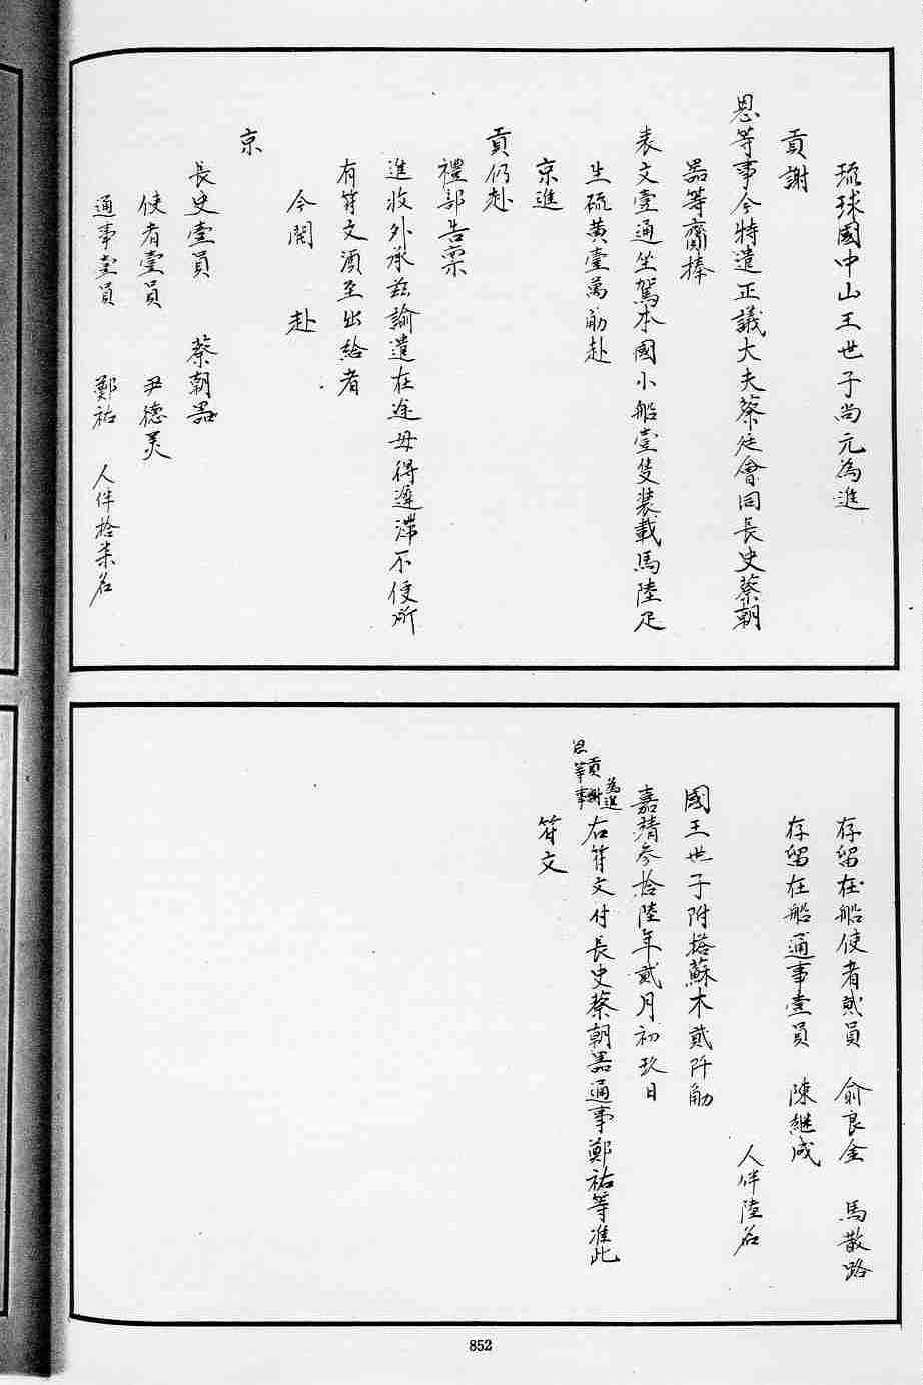 琉球國中山王世子尚元為進
貢謝
恩等事今特遣正議大夫蔡廷會同長史蔡朝
器等齎捧
表文壹通坐駕本國小船壹隻裝載馬陸疋
生硫黄壹萬觔赴
京進
貢仍赴
禮部告稟
進收外承茲諭遣在途毋得遲滯不便所
有符文湏至出給者
今開 赴
京
長史壹員 蔡朝器
使者壹員 尹德美
通事壹員 鄭祐 人伴拾柒名
存留在船使者貳員 俞良金 馬散路
存留在船通事壹員 陳継成
人伴陸名
國王世子附搭蘇木貳阡觔
嘉靖參拾陸年貳月初玖日
為進
貢謝
恩等事
右符文付長史蔡朝器通事鄭祐等准此
符文
852